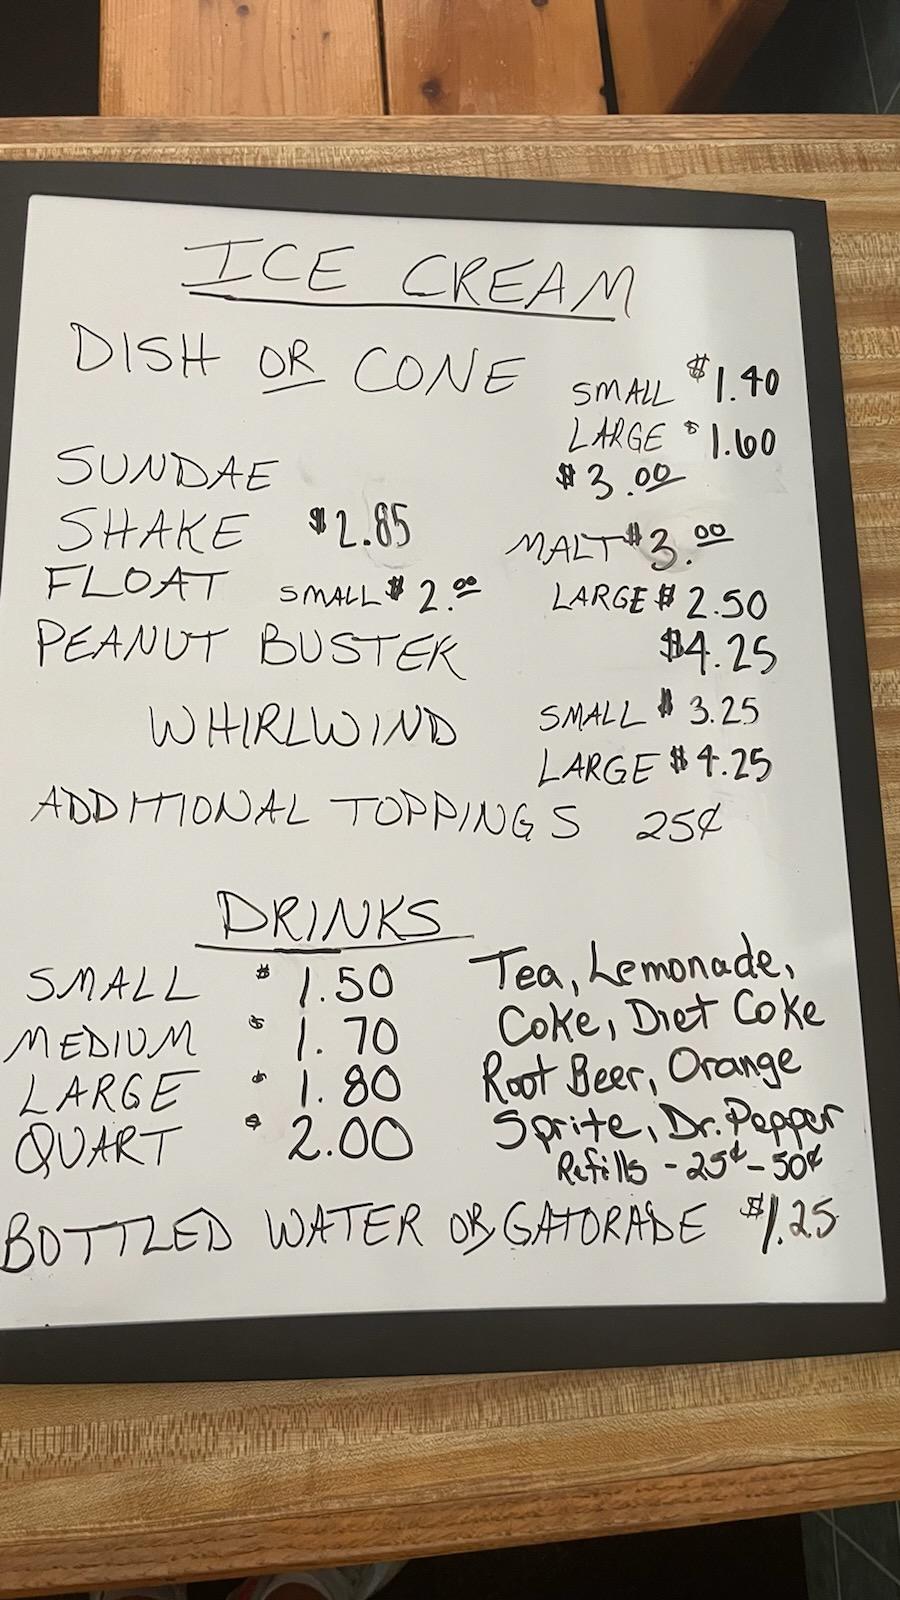 ICE CREAM
DISH OR CONE SMALL $1.40
LARGE $1.60
SUNDAE $3.00
SHAKE $2.85 MALT $3.00
FLOAT SMALL $2.00 LARGE $2.50
PEANUT BUSTER $4.25
WHIRLWIND SMALL $3.25
LARGE $4.25
ADDITIONAL TOPPINGS 25¢
DRINKS
SMALL $1.50 Tea, Lemonade,
MEDIUM $1.70 Coke, Diet Coke
LARGE $1.80 Root Beer, Orange
QUART $2.00 Sprite, Dr. Pepper
Refills - 25¢ - 50¢
BOTTLED WATER OR GATORADE $1.25